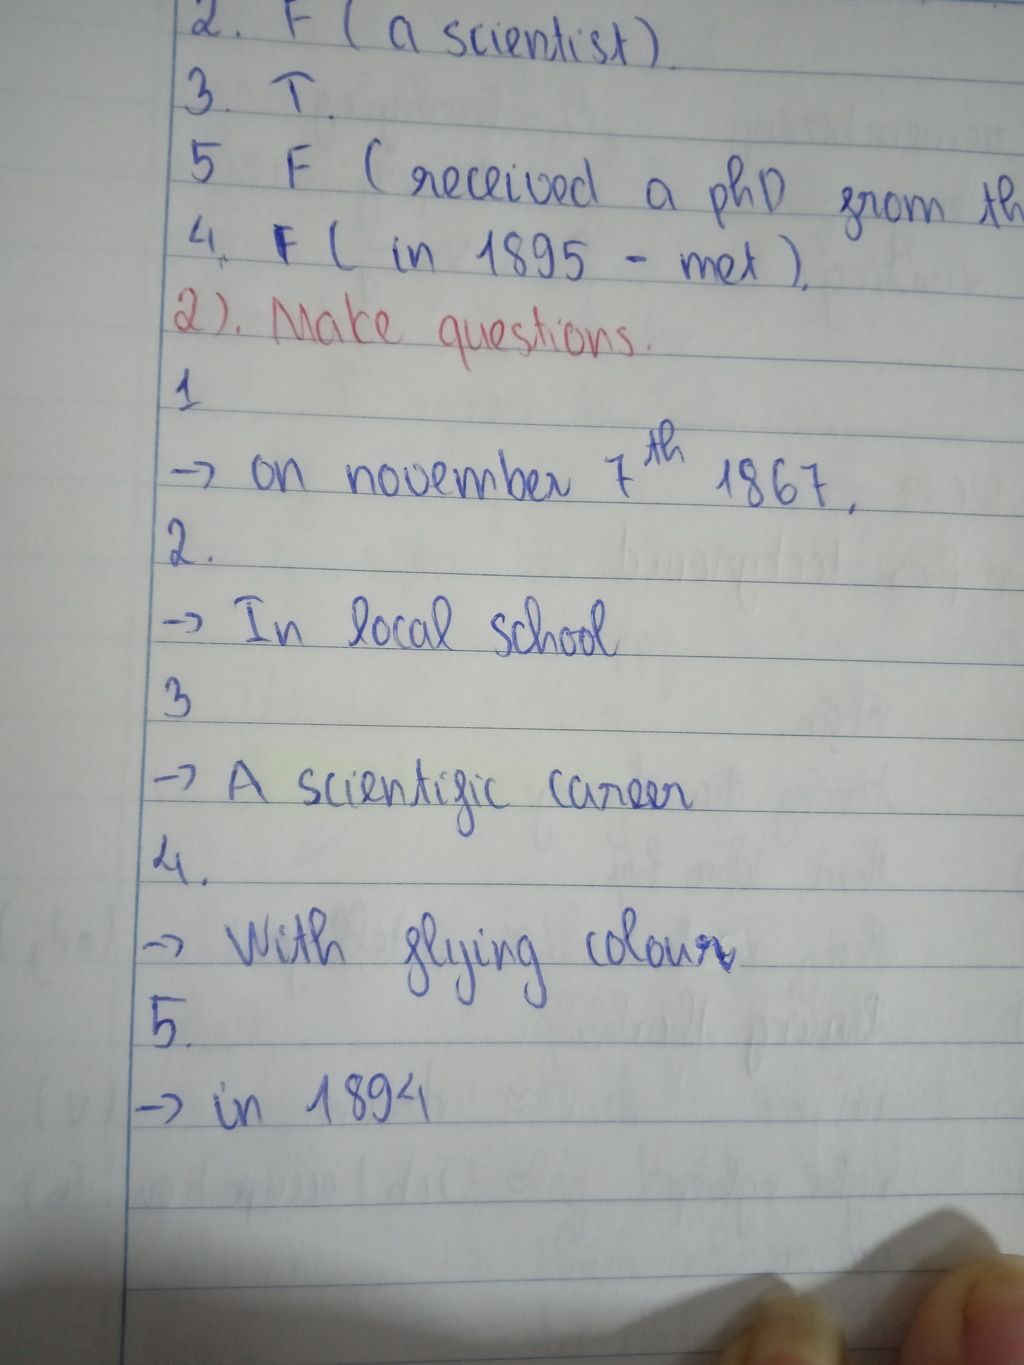 2. F ( a scientist).
3. T.
5 F ( received a phD from th
4. F ( in 1895 - met ).
2). Make questions.
1
→ on november 7th 1867.
2.
→ In local school
3
→ A scientific career
4.
→ With flying colour
5.
→ in 1894